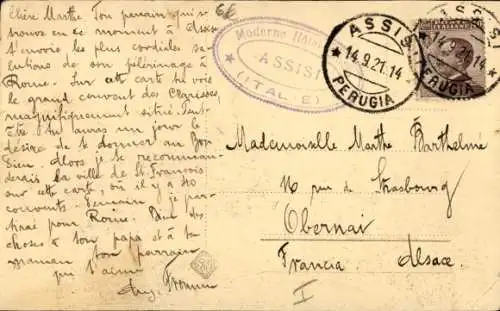 Chère Marthe Ton parrain qui se
trouve en ce moment à Assise
t'envoie les plus cordiales sa-
lutations de son pèlerinage à
Rome. Sur cette carte tu vois
le grand couvent des Clarisses,
magnifiquement situé. Peut-
être tu auras un jour le
désire de te donner au bon
Dieu. Alors je te recomman-
derais la ville de St François
sur cette carte, où il y a 40
couvents. Demain je par-
tirai pour Rome. Bien des
choses à ton papa et à ta
maman ton parrain
qui t'aime
6£
Moderne Hôtel
ASSISI
(ITALIE)
ASSISI
14.9.21.14
PERUGIA
ASSISI
14.9.21.14
PERUGIA
Mademoiselle Marthe Barthelmé
16 rue de Strasbourg
Obernai
Francia. Alsace.
I